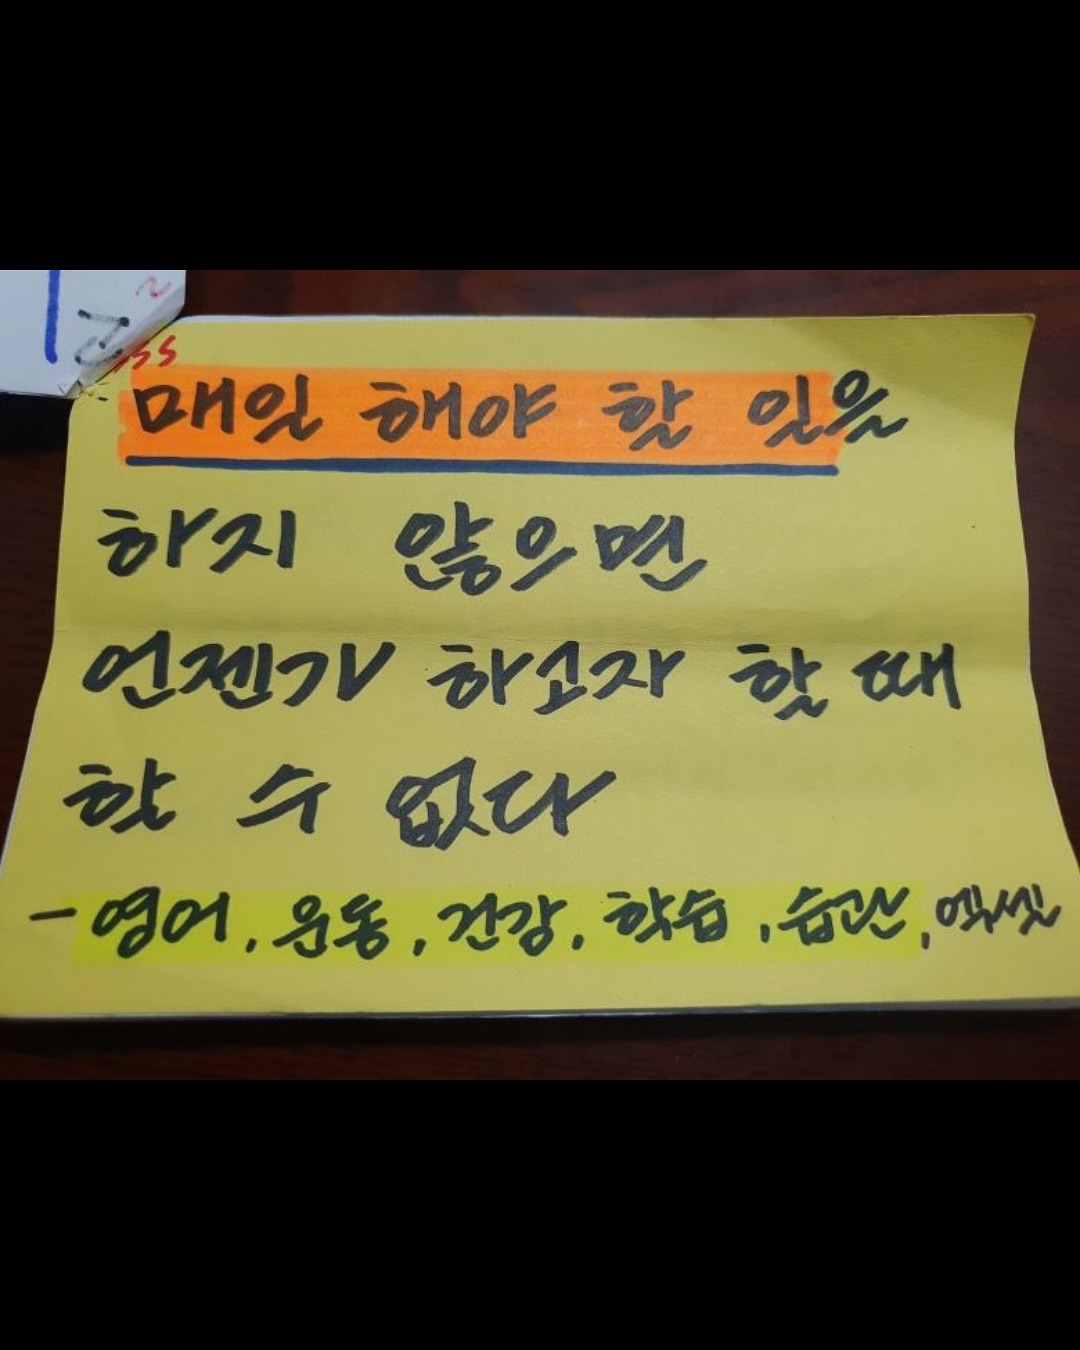 매일 해야 할 일을
하지 않으면
언젠가 하고자 할 때
할 수 없다
- 영어, 운동, 건강, 학습, 습관, 엑셀